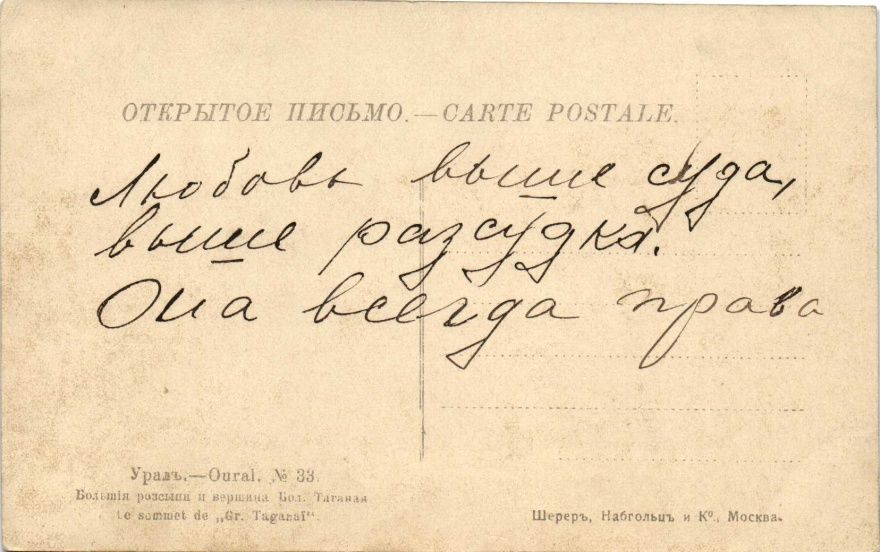 ОТКРЫТОЕ ПИСЬМО.—CARTE POSTALE.
Любовь выше суда,
выше разсудка.
Она всегда права
Уралъ.—Oural. № 33.
Большія розсыпи и вершина Бол. Таганая
Le sommet de „Gr. Taganaï“.
Шереръ, Набгольцъ и К⁰., Москва.